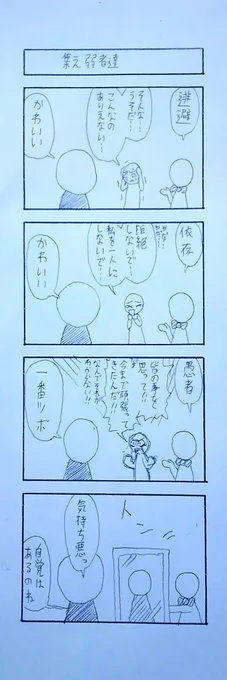 集え弱者達
逃避
そんな…
うそだ…
こんなの
ありえない…
かわいい
依存
拒絶
しないで…
私を一人に
しないで…
かわいい
愚者
皆の事を
思って!!
今まで頑張って
きたんだ!!
なんでそれが
わからない!!
一番ツボ
トン
気持ち悪っ
自覚は
あるのね